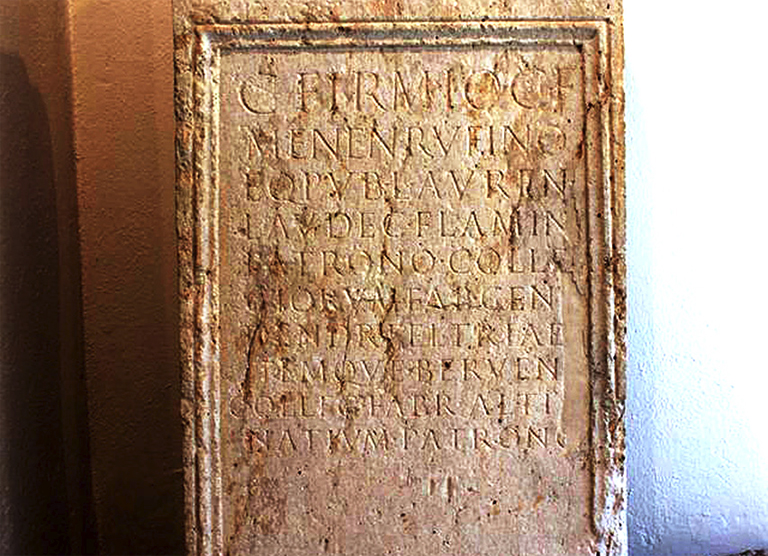 C FIRMIO C F
MENEN RVFINO
EQ PVB LAVREN
LAV DEC·FLAMIN
PATRONO·COLLE
GIORVM FAB CEN
DENDR FELTRIAE
ITEMQVE·BERVEN
COLLEG FABR ALTI
NATIVM·PATRON